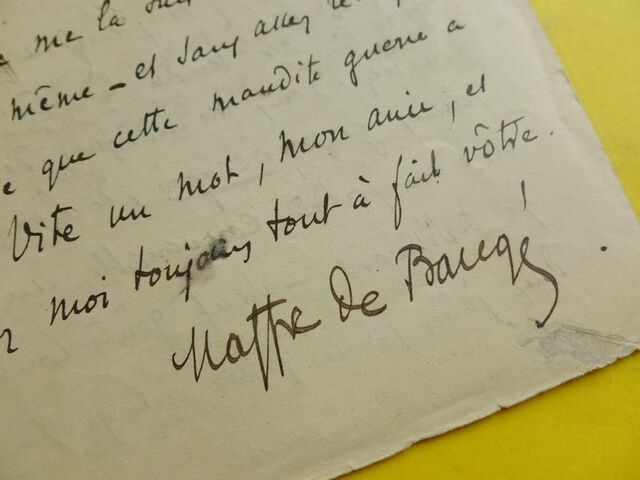 me la
même – et sans aller
que cette maudite guerre a
Vite un mot, mon ami, et
moi toujours tout à fait vôtre.
Maffre de Baugé